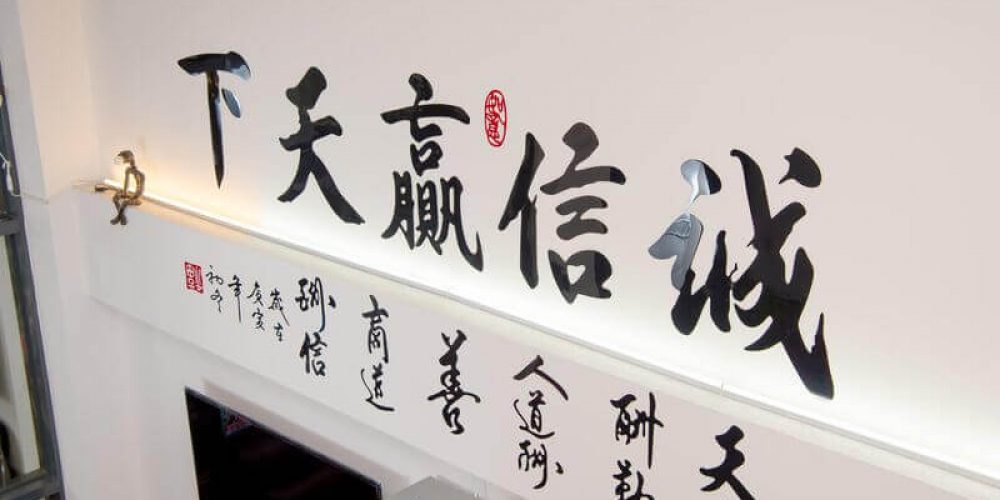 诚信赢天下
如意
天酬勤人道酬善商道酬信
岁在庚寅年初冬